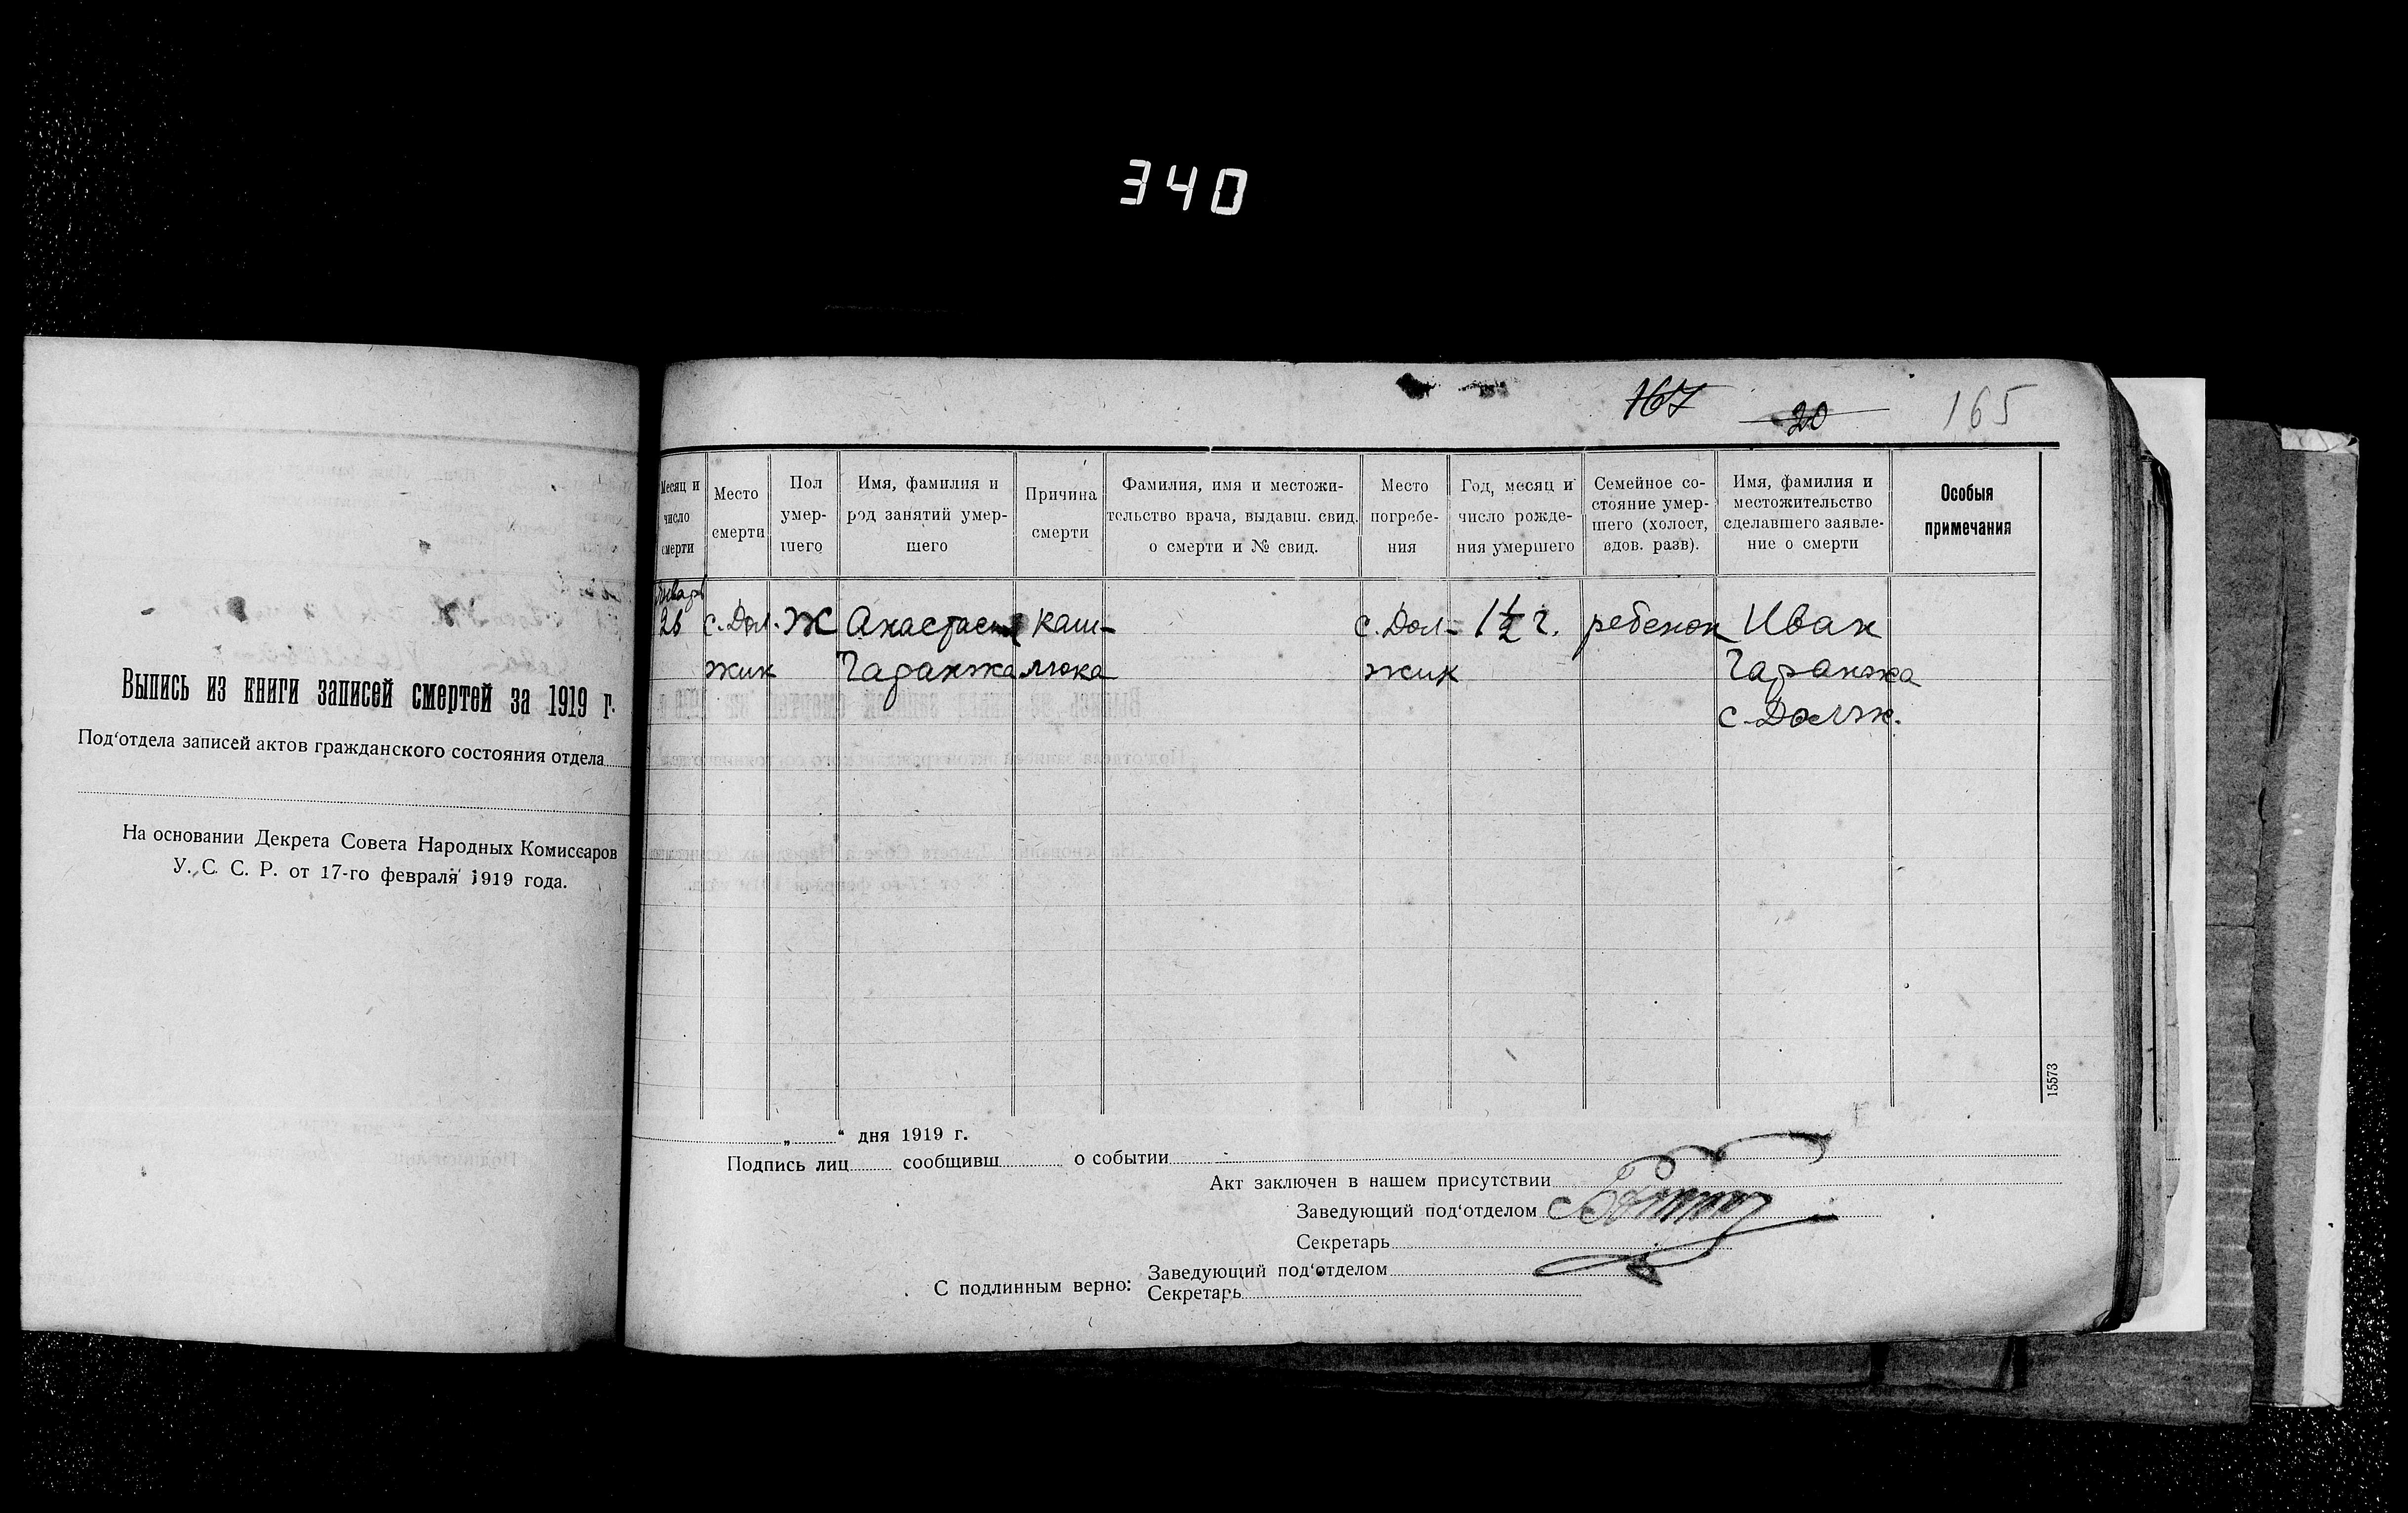 340
Выпись из книги записей смертей за 1919 г.
Под‘отдела записей актов гражданского состояния отдела
На основании Декрета Совета Народных Комиссаров
У. С. С. Р. от 17-го февраля 1919 года.
167 20 165
Месяц и число смерти
Место смерти
Пол умер-
шего
Имя, фамилия и
род занятий умер-
шего
Причина
смерти
Фамилия, имя и местожи-
тельство врача, выдавш. свид.
о смерти и № свид.
Место
погребе-
ния
Год, месяц и
число рожде-
ния умершего
Семейное со-
стояние умер-
шего (холост,
вдов. разв).
Имя, фамилия и
местожительство
сделавшего заявле-
ние о смерти
Особыя
примечания
Январь
26 с. Дол- Ж Анастасия каш- с. Дол- 1 1/2 г. ребенок Иван
жик Гаранжа люка жик Гаранжа
с. Должк.
15573
„ “ дня 1919 г.
Подпись лиц сообщивш о событии
Акт заключен в нашем присутствии
Заведующий под‘отделом
Секретарь
С подлинным верно: Заведующий под‘отделом
Секретарь